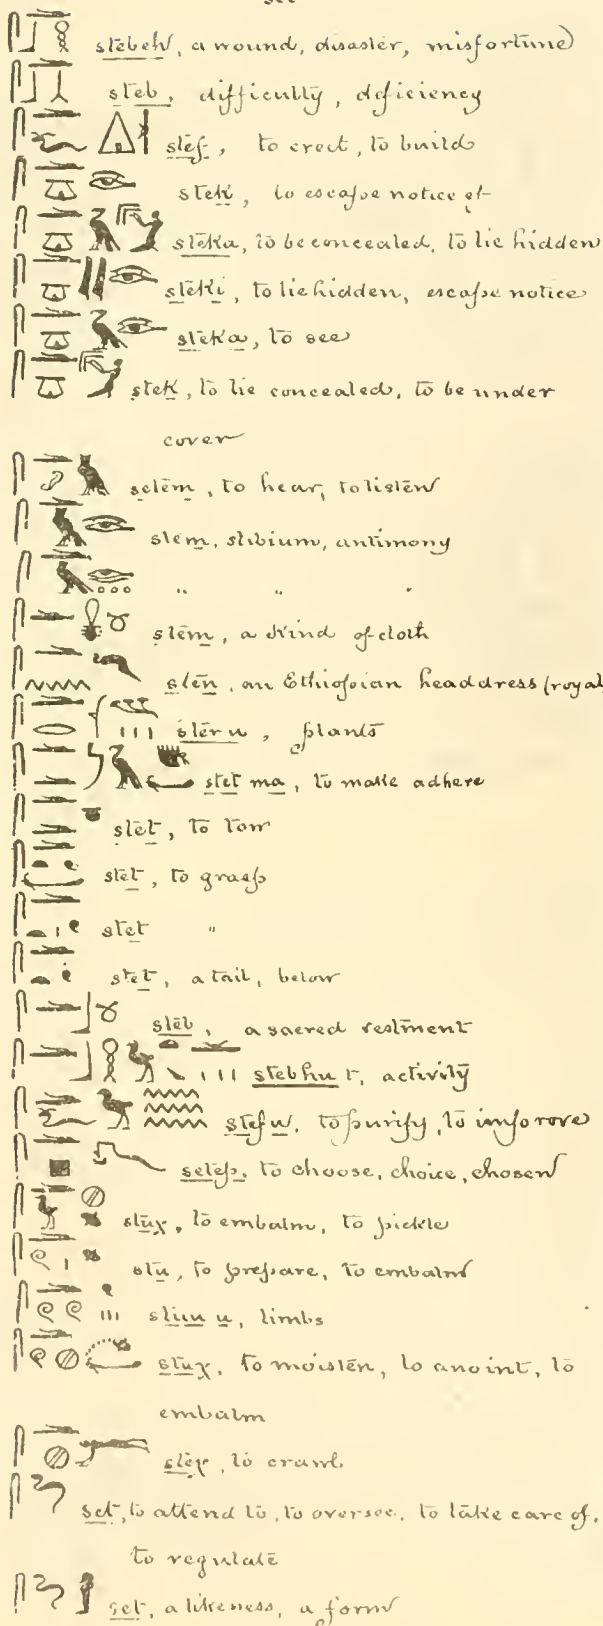 stebeh, a wound, disaster, misfortune
steb, difficulty, deficiency
stef, to erect, to build
stek, to escape notice of
steka, to be concealed, to lie hidden
steki, to lie hidden, escape notice
steka, to see
stek, to lie concealed, to be under
cover
setem, to hear, to listen
stem, stibium, antimony
" " "
stem, a kind of cloth
sten, an Ethiopian headdress (royal
steru, plants
stet ma, to make adhere
stet, to tow
stet, to grasp
stet "
stet, a tail, below
steb, a sacred vestment
stebhu t, activity
stefu, to purify, to improve
setep, to choose, choice, chosen
stuχ, to embalm, to pickle
stu, to prepare, to embalm
u, limbs
stuχ, to moisten, to anoint, to
embalm
steχ, to crawl
set, to attend to, to oversee, to take care of,
to regulate
set, a likeness, a form